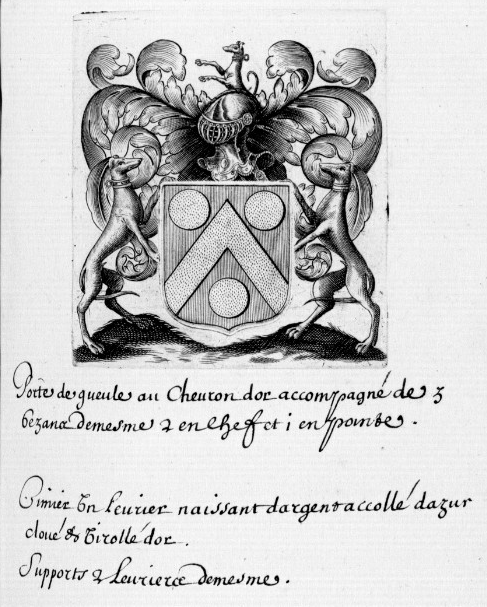 Porte de gueule au Cheuron dor accompagné de 3
bezance demesme 2 en chef et i en pointe .
Cimier Vn leurier naissant dargent accollé dazur
cloué & Virollé dor .
Supports 2 leurierce demesme .